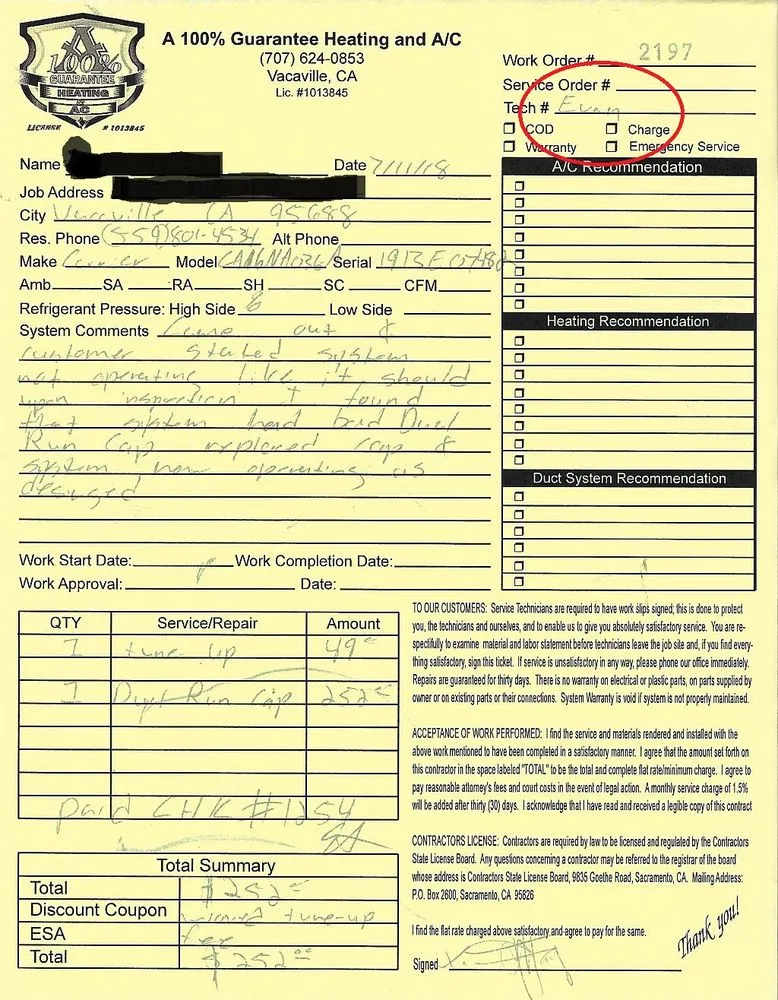 A
100%
GUARANTEE
HEATING
AND
AC
LICENSE # 1013845
A 100% Guarantee Heating and A/C
(707) 624-0853
Vacaville, CA
Lic. #1013845
Work Order # 2197
Service Order #
Tech # Evan
COD Charge
Warranty Emergency Service
Name Date 7/11/18
Job Address
City Vacaville CA 95688
Res. Phone (559)801-4534 Alt Phone
Make Carrier Model CA16NA036 Serial 1913E
Amb. SA RA SH SC CFM
Refrigerant Pressure: High Side Low Side
System Comments Came out &
customer stated system
not operating like it should
upon inspection I found
that system had bad Dual
Run Cap replaced cap &
system now operating as
desinged
Work Start Date: Work Completion Date:
Work Approval: Date:
A/C Recommendation
Heating Recommendation
Duct System Recommendation
QTY Service/Repair Amount
1 tune up 49
1 Run Cap 252
paid CHK #1254
Total Summary
Total $252
Discount Coupon tune-up
ESA fee
Total $252
TO OUR CUSTOMERS: Service Technicians are required to have work slips signed; this is done to protect
you, the technicians and ourselves, and to enable us to give you absolutely satisfactory service. You are re-
spectfully to examine material and labor statement before technicians leave the job site and, if you find every-
thing satisfactory, sign this ticket. If service is unsatisfactory in any way, please phone our office immediately.
Repairs are guaranteed for thirty days. There is no warranty on electrical or plastic parts, on parts supplied by
owner or on existing parts or their connections. System Warranty is void if system is not properly maintained.
ACCEPTANCE OF WORK PERFORMED: I find the service and materials rendered and installed with the
above work mentioned to have been completed in a satisfactory manner. I agree that the amount set forth on
this contractor in the space labeled "TOTAL" to be the total and complete flat rate/minimum charge. I agree to
pay reasonable attorney's fees and court costs in the event of legal action. A monthly service charge of 1.5%
will be added after thirty (30) days. I acknowledge that I have read and received a legible copy of this contract
CONTRACTORS LICENSE: Contractors are required by law to be licensed and regulated by the Contractors
State License Board. Any questions concerning a contractor may be referred to the registrar of the board
whose address is Contractors State License Board, 9835 Goethe Road, Sacramento, CA. Mailing Address:
P.O. Box 2600, Sacramento, CA 95826
I find the flat rate charged above satisfactory and agree to pay for the same.
Signed
Thank you!